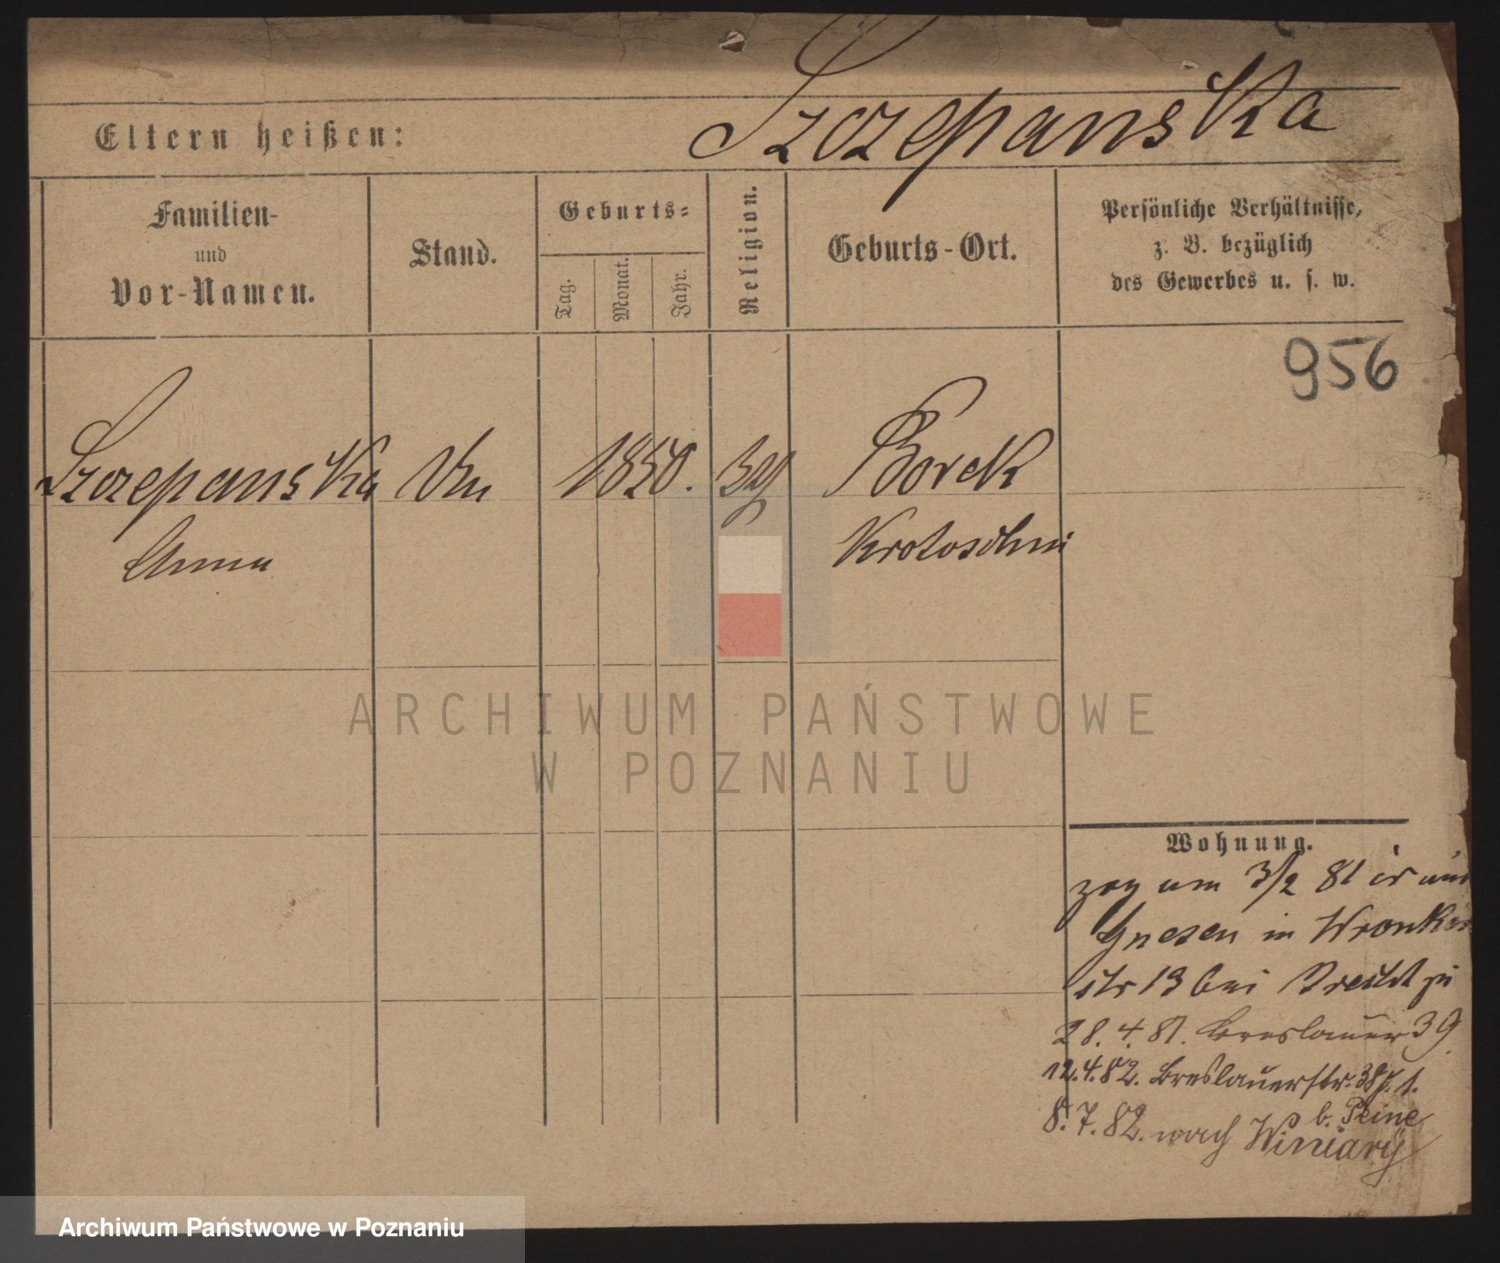 Szczepanska
Eltern heißen:
Familien-
und
Vor-Namen.
Stand.
Geburts-
Tag.
Monat.
Jahr.
Religion.
Geburts-Ort.
Persönliche Verhältnisse,
z. B. bezüglich
des Gewerbes u. s. w.
956
Szczepanska
Anna
1850.
Borek
Krotoschin
ARCHIWUM PAŃSTWOWE
W POZNANIU
Wohnung.
zog am 3/2 81
Gnesen in Wronker
str 13 bei
28. 4. 81. Breslauer 39
12.4.82. Breslauerstr.
b. Peine
8.7.82. nach Winiary
Archiwum Państwowe w Poznaniu